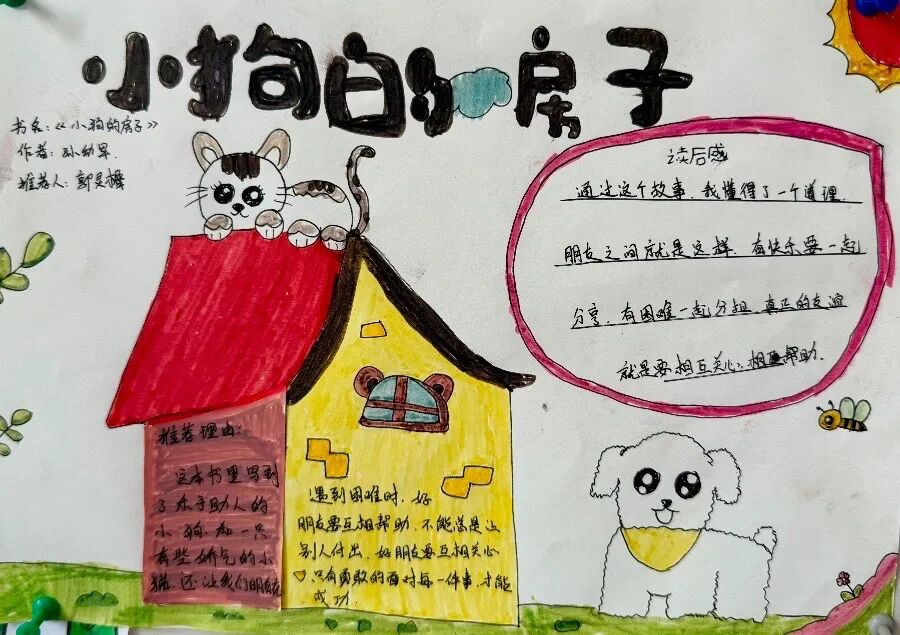 小狗的房子
书名:《小狗的房子》
作者:孙幼军.
推荐人:郭
读后感
通过这个故事,我懂得了一个道理.
朋友之间就是这样,有快乐要一起
分享,有困难一起分担,真正的友谊
就是要相互关心,相互帮助.
推荐理由:
这本书里写到
了乐于助人的
小狗和一只
有些娇气的小
猫.还让我们明白在
遇到困难时,好
朋友要互相帮助,不能总是让
别人付出,好朋友要互相关心
只有勇敢的面对每一件事,才能
成功.